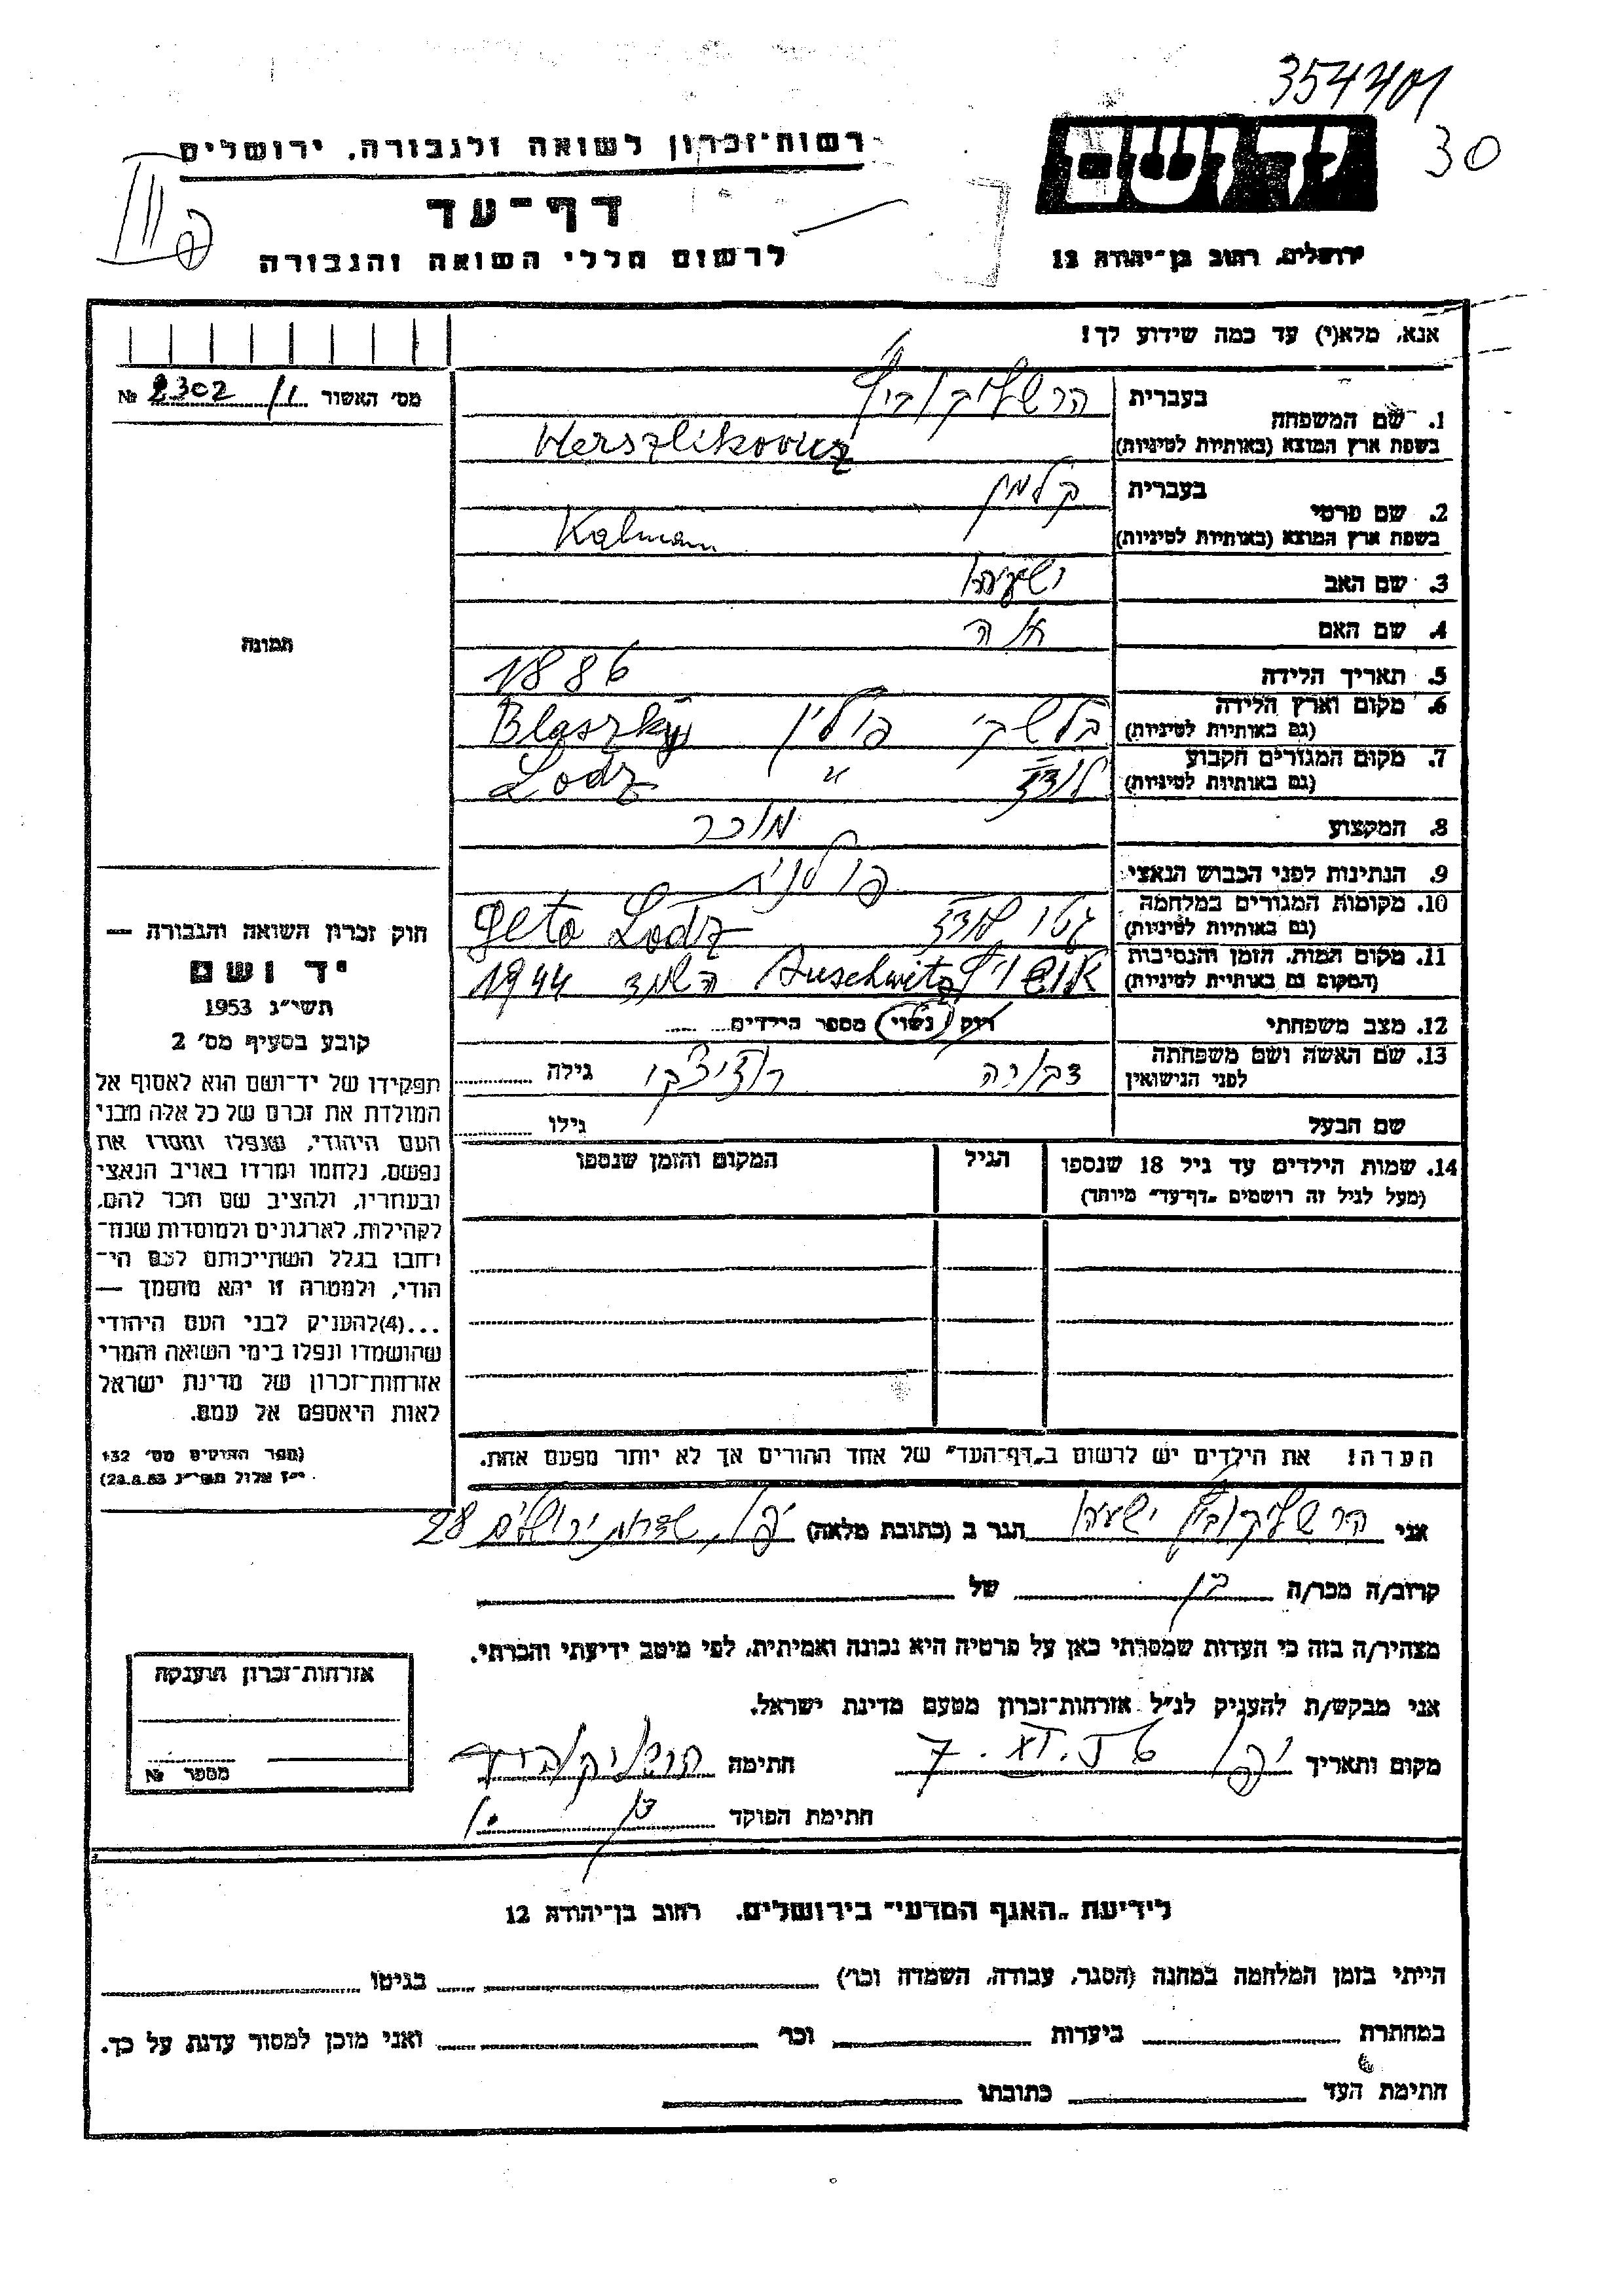 354401
30
יד ושם
ירושלים, רחוב בן־יהודה 12
רשות־זכרון לשואה ולגבורה, ירושלים
דף־עד
לרשום חללי השואה והגבורה
אנא, מלא(י) עד כמה שידוע לך!
מס׳ האשור 1/ 2302 №
תמונה
1. שם המשפחה
בעברית הרשליקוביץ
בשפת ארץ המוצא (באותיות לטיניות) Herszlikovicz
2. שם פרטי
בעברית קלמן
בשפת ארץ המוצא (באותיות לטיניות) Kalman
3. שם האב ישעיהו
4. שם האם
5. תאריך הלידה 1886
6. מקום וארץ הלידה בלשקי פולין Blaszky
(גם באותיות לטיניות)
7. מקום המגורים הקבוע לודז " Lodz
(גם באותיות לטיניות)
8. המקצוע מוכר
9. הנתינות לפני הכבוש הנאצי פולנית
10. מקומות המגורים במלחמה גטו לודז geto Lodz
(גם באותיות לטיניות)
11. מקום המות, הזמן והנסיבות אושויץ Auschwitz הושמד 1944
(המקום גם באותיות לטיניות)
12. מצב משפחתי רווק / נשוי מספר הילדים
13. שם האשה ושם משפחתה
לפני הנישואין
גילה
שם הבעל
גילו
14. שמות הילדים עד גיל 18 שנספו
(מעל לגיל זה רושמים „דף־עד" מיוחד)
הגיל
המקום והזמן שנספו
חוק זכרון השואה והגבורה —
יד ושם
תשי״ג 1953
קובע בסעיף מס׳ 2
תפקידו של יד־ושם הוא לאסוף אל
המולדת את זכרם של כל אלה מבני
העם היהודי, שנפלו ומסרו את
נפשם, נלחמו ומרדו באויב הנאצי
ובעוזריו, ולהציב שם וזכר להם,
לקהילות, לארגונים ולמוסדות שנח־
רחבו בגלל השתייכותם לעם הי־
הודי, ולמטרה זו יהא מוסמך —
...(4)להעניק לבני העם היהודי
שהושמדו ונפלו בימי השואה והמרי
אזרחות־זכרון של מדינת ישראל
לאות היאספם אל עמם.
(ספר החוקים מס׳ 132
י״ז אלול תשי״ג 28.8.53)
הערה! את הילדים יש לרשום ב„דף־העד" של אחד ההורים אך לא יותר מפעם אחת.
אני הרשליקוביץ ישעיהו הגר ב (כתובת מלאה) יפו, שדרות ירושלים 28
קרוב/ה מכר/ה בן של
מצהיר/ה בזה כי העדות שמסרתי כאן על פרטיה היא נכונה ואמיתית, לפי מיטב ידיעתי והכרתי.
אני מבקש/ת להעניק לנ״ל אזרחות־זכרון מטעם מדינת ישראל.
מקום ותאריך יפו 7. חתימה הרשליקוביץ
חתימת הפוקד
אזרחות־זכרון הוענקה
מספר №
לידיעת „האגף המדעי" בירושלים, רחוב בן־יהודה 12
הייתי בזמן המלחמה במחנה (הסגר, עבודה, השמדה וכו׳) בגיטו
במחתרת ביערות וכו׳ ואני מוכן למסור עדות על כך.
חתימת העד כתובתו